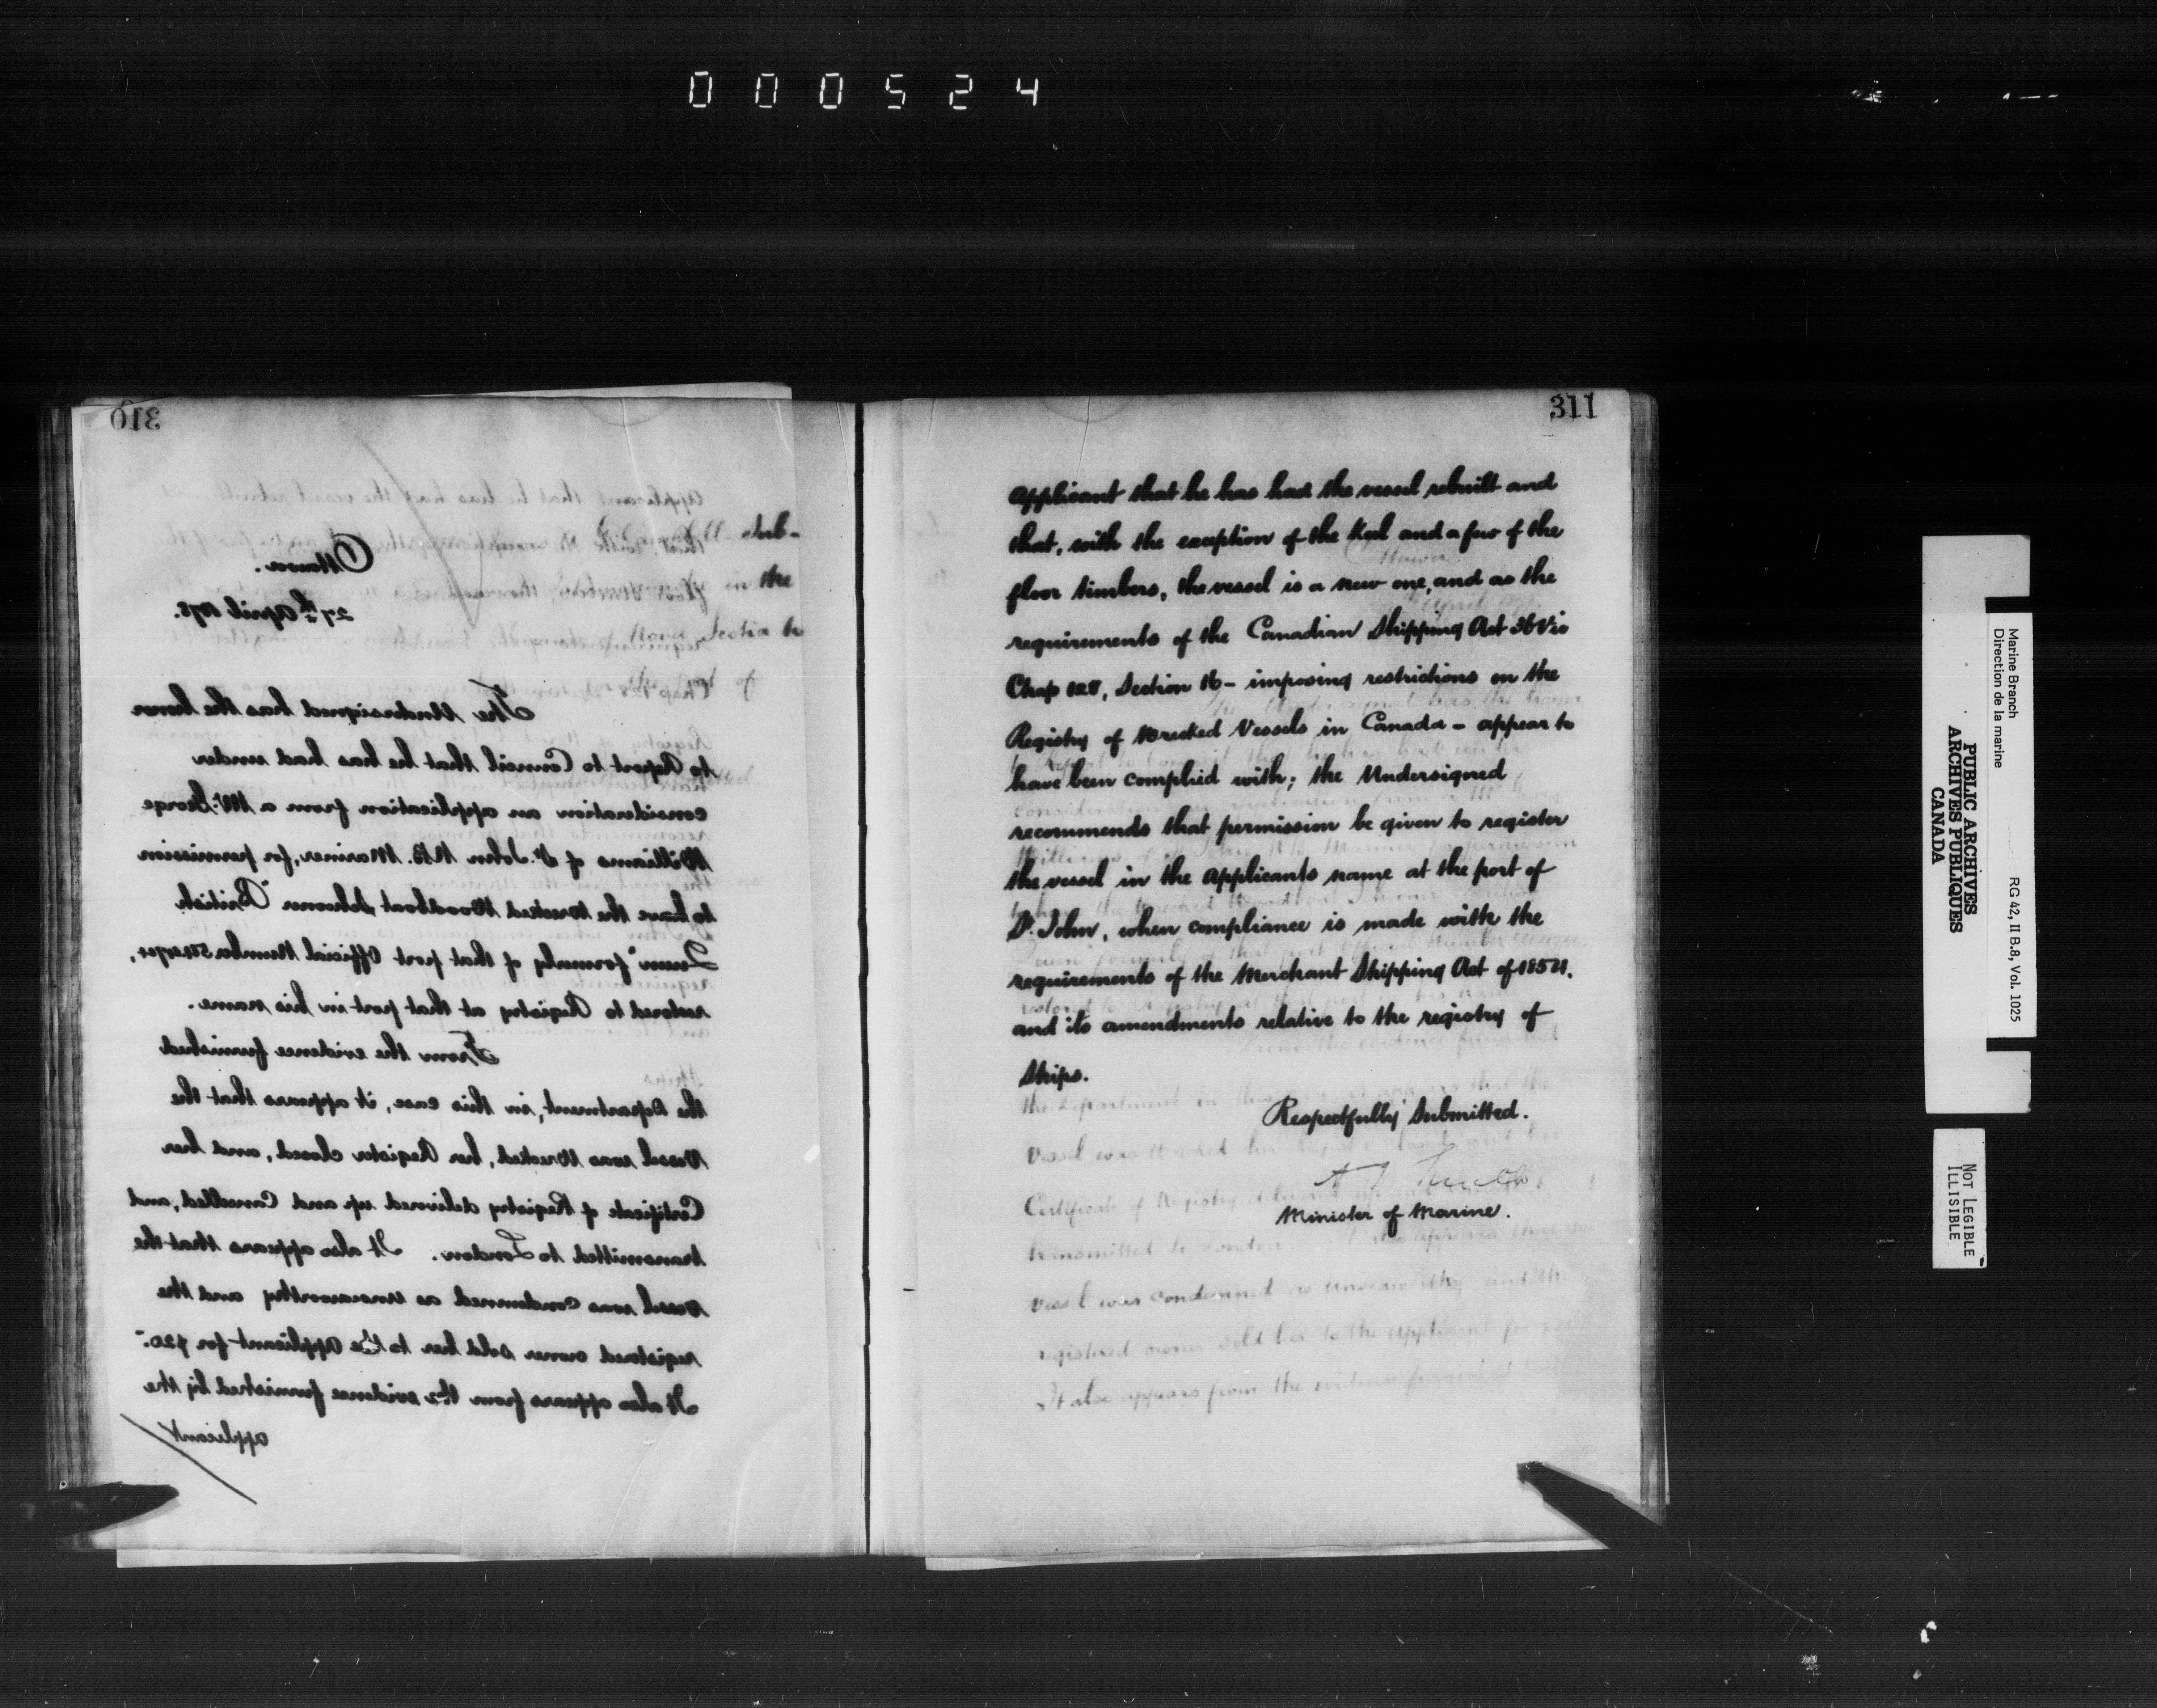 000524
310
Ottawa.
27th April 1878.
The Undersigned has the honor
to Report to Council that he has had under
consideration an application from a Mr. George
Williams of St. John N.B. Mariner, for permission
to have the Wrecked Woodboat Schooner "British
Queen" formerly of that port Official Number
restored to Registry at that port in his name.
From the evidence furnished
the Department, in this case, it appears that the
Vessel was Wrecked, her Register closed, and her
Certificate of Registry delivered up and Cancelled, and
transmitted to London. It also appears that the
Vessel was Condemned as Unseaworthy and the
registered owner sold her to the Applicant for $20.-
It also appears from the evidence furnished by the
applicant
311
Applicant that he has had the vessel rebuilt and
that, with the exception of the Keel and a few of the
floor timbers, the vessel is a new one, and as the
requirements of the Canadian Shipping Act 36 Vic
Chap 128, Section 16 - imposing restrictions on the
Registry of Wrecked Vessels in Canada - appear to
have been complied with; the Undersigned
recommends that permission be given to register
the vessel in the Applicants name at the port of
St. John, when compliance is made with the
requirements of the Merchant Shipping Act of 1854.
and its amendments relative to the registry of
Ships.
Respectfully Submitted.
A J Smith
Minister of Marine.
Marine Branch
Direction de la marine
RG 42, II B.8, Vol. 1025
PUBLIC ARCHIVES
ARCHIVES PUBLIQUES
CANADA
NOT LEGIBLE
ILLISIBLE